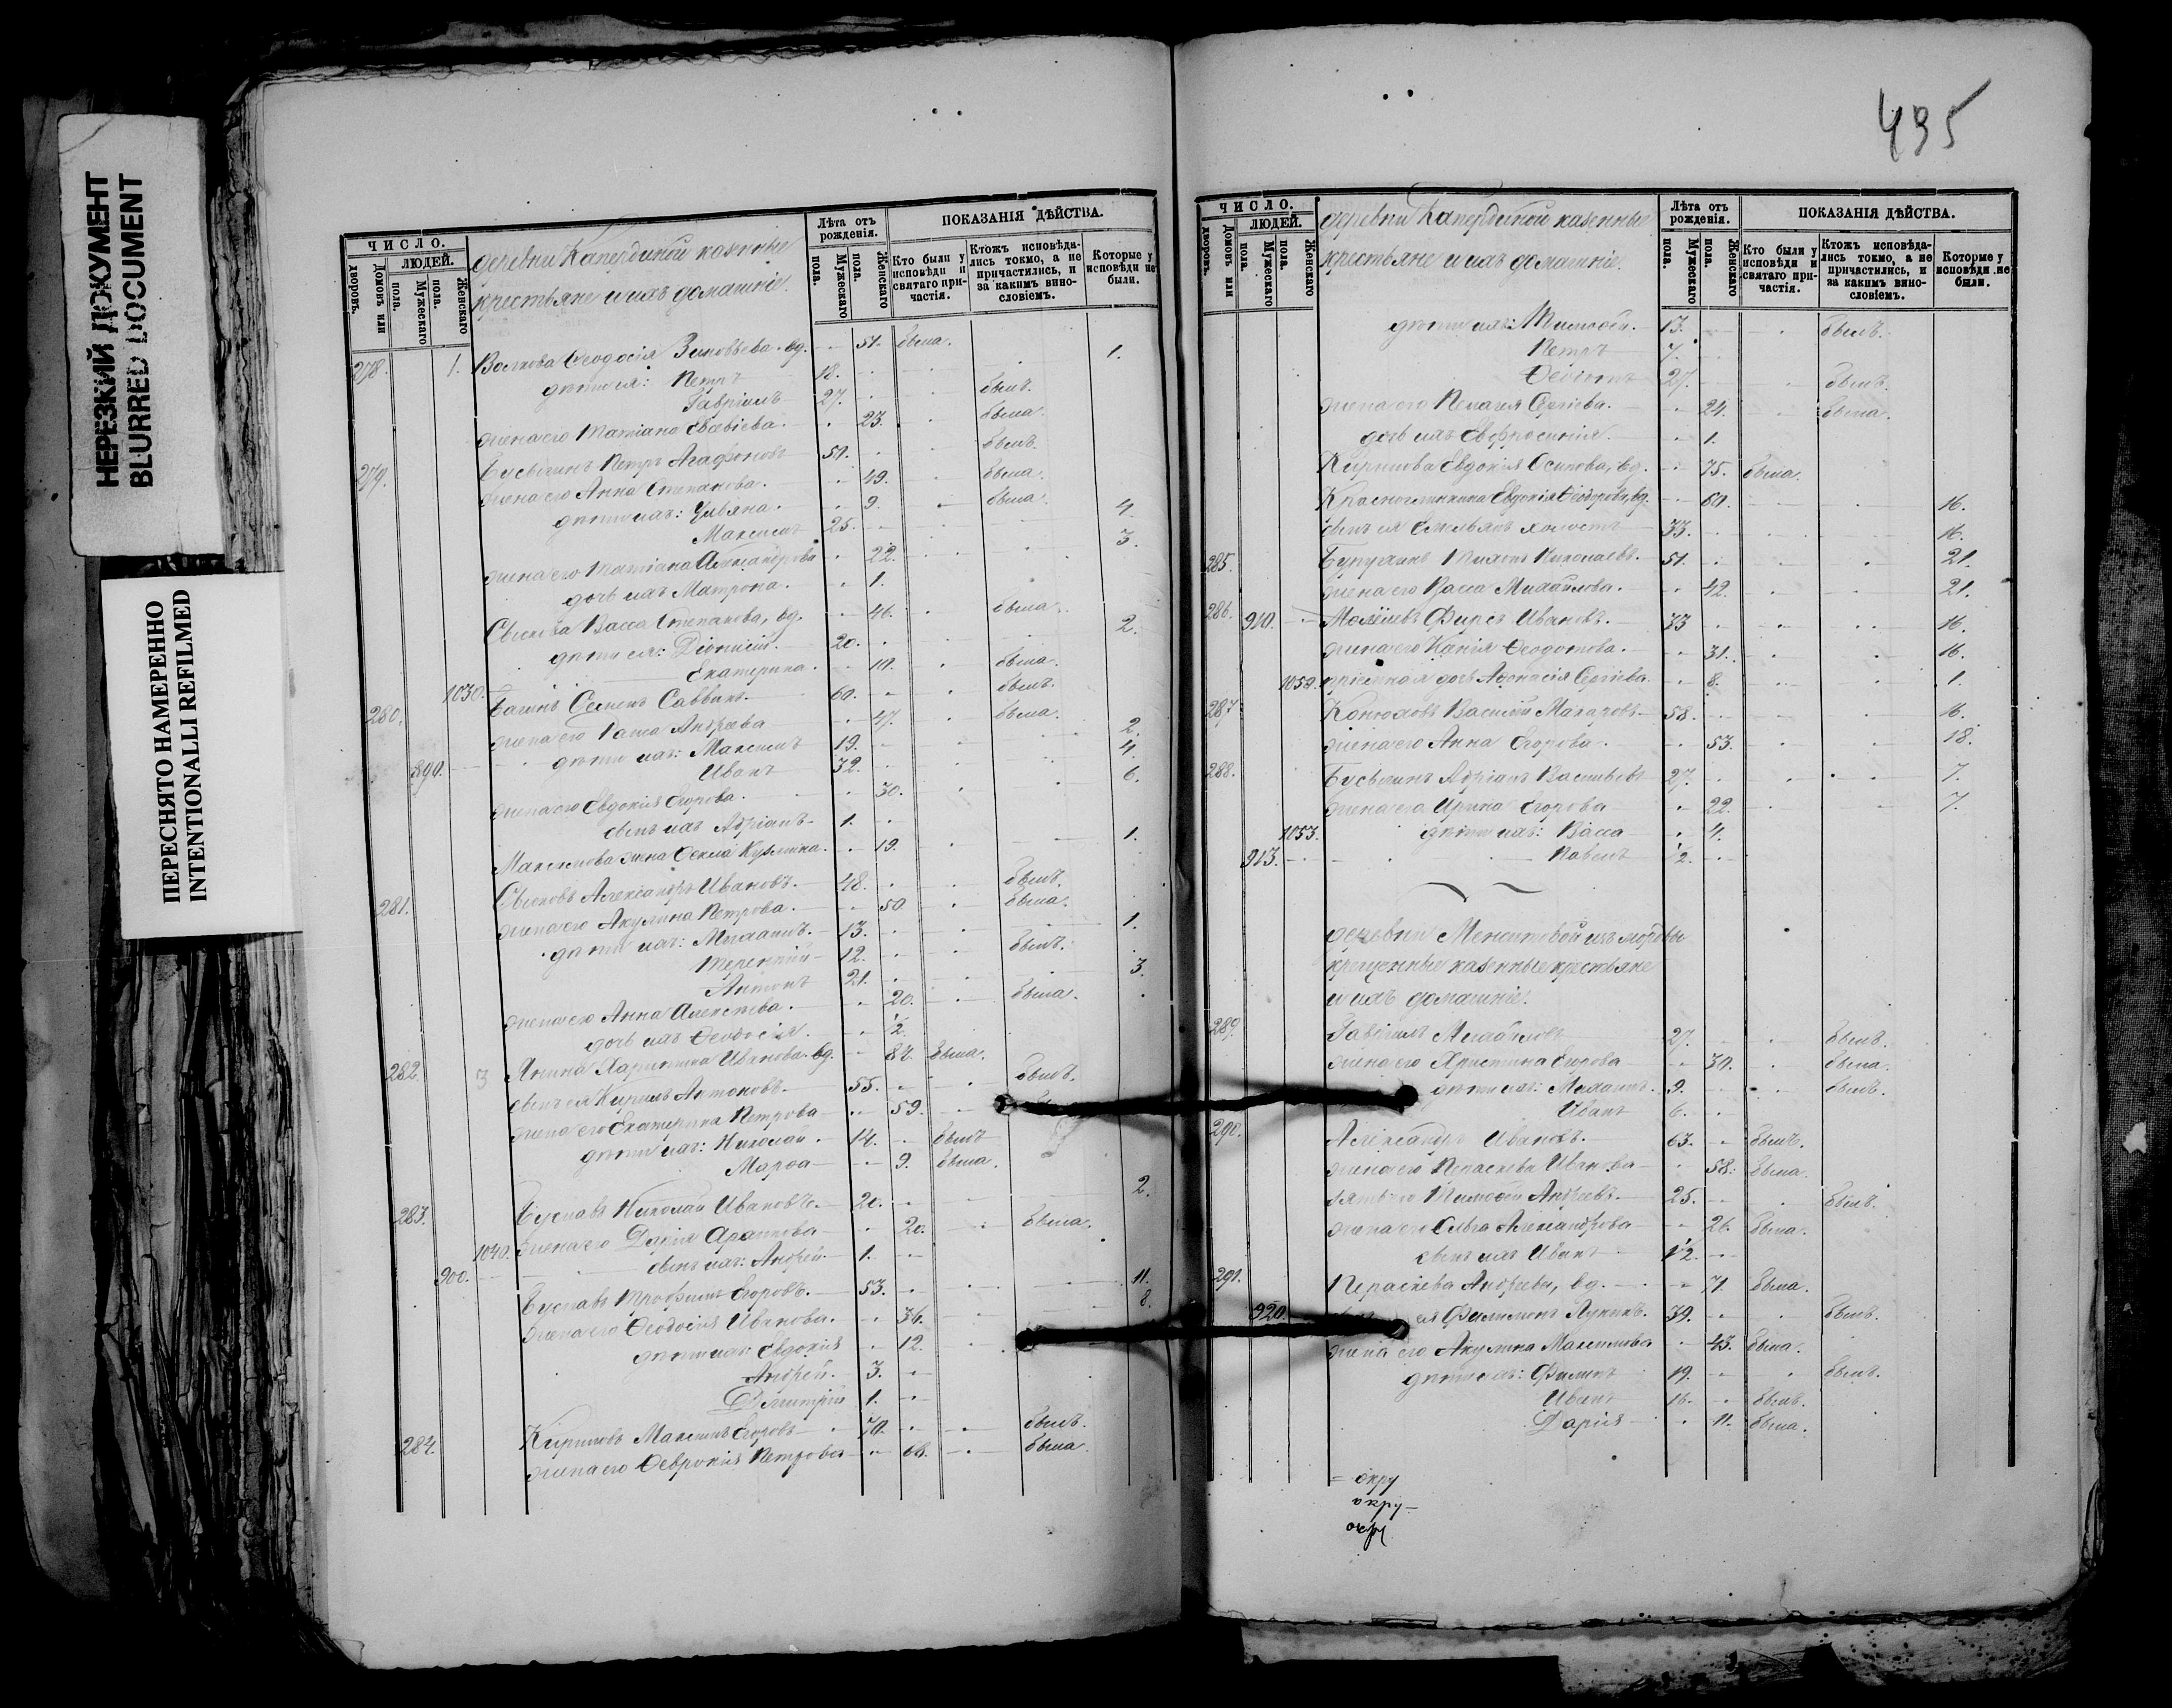 НЕРЕЗКИЙ ДОКУМЕНТ
BLURRED DOCUMENT
ПЕРЕСНЯТО НАМЕРЕННО
INTENTIONALLI REFILMED
ЧИСЛО.
ЛЮДЕЙ.
Домовъ или дворовъ.
Мужескаго пола.
Женскаго пола.
деревни казенные
крестьяне и ихъ домашнiе.
Лѣта отъ рожденiя.
Мужескаго пола.
Женскаго пола.
ПОКАЗАНIЯ ДѢЙСТВА.
Кто были у исповѣди и святаго причастiя.
Ктожъ исповѣдались токмо, а не причастились, и за какимъ винословiемъ.
Которые у исповѣди не были.
278. 1. Волкова Ѳеодосiя Зиновьева вд. 51. была.
дѣти ея: Петръ 18. 1.
Гаврiилъ 27. былъ.
жена его Татiана Евсевiева. 23. была.
279. Петръ Агафоновъ 50. былъ.
жена его Анна Степанова. 49. была.
дѣти ихъ: Ульяна. 9. была.
Максимъ 25. 4
жена его Татiана Александрова 22. 3.
дочь ихъ Матрона. 1.
Васса Степанова, вд. 46. была.
дѣти ея: Дiонисiй. 20. 2.
Екатерина. 10. была.
280. 1030. Семенъ Саввинъ 60. былъ.
жена его Андреева 47. была.
890. дѣти ихъ: Максимъ 19. 2.
Иванъ 32. 4.
жена его Евдокiя Егорова. 30. 6.
сынъ ихъ Адрiанъ 1.
Максимова жена Ѳекла Кузмина. 19. 1.
281. Александръ Ивановъ. 48. былъ.
жена его Акулина Петрова. 50. была.
дѣти ихъ: Михаилъ. 13. 1.
Терентiй 12. былъ.
Антонъ 21. 3.
жена его Анна Алексѣева. 20. была.
дочь ихъ Ѳеодосiя. 1/2.
282. 3 Харитина Иванова вд. 82. была.
сынъ ея Кирилъ Антоновъ. 55. былъ.
жена его Екатерина Петрова 59.
дѣти ихъ: Николай. 14. былъ
Марѳа 9. была.
283. Николай Ивановъ. 20. 2.
жена его 20. была.
900. 1040. сынъ ихъ: Андрей 1.
Трофимъ Егоровъ. 53. 11.
жена его Ѳеодосiя Иванова. 34. 8.
дѣти ихъ: Евдокiя 12.
Андрей. 3.
Дмитрiй 1.
284. Кириловъ Максимъ Егоровъ 70. былъ.
жена его Петрова 68. была.
435
ЧИСЛО.
ЛЮДЕЙ.
Домовъ или дворовъ.
Мужескаго пола.
Женскаго пола.
деревни казенные
крестьяне и ихъ домашнiе.
Лѣта отъ рожденiя.
Мужескаго пола.
Женскаго пола.
ПОКАЗАНIЯ ДѢЙСТВА.
Кто были у исповѣди и святаго причастiя.
Ктожъ исповѣдались токмо, а не причастились, и за какимъ винословiемъ.
Которые у исповѣди не были.
дѣти ихъ: Тимоѳей. 13. былъ.
Петръ 7.
27. былъ.
жена его Пелагея Сергiева. 24. была.
дочь ихъ Евфросинiя. 1.
Кирилова Евдокiя Осипова, вд. 75. была.
Евдокiя Ѳеодорова, вд. 60. 16.
сынъ ея Емельянъ холостъ 33. 16.
285. Тихонъ Николаевъ. 51. 21.
жена его Васса Михайлова. 42. 21.
286. 910. Фирсъ Ивановъ. 33 16.
жена его Ѳеодотова. 31. 16.
1050. прiемная дочь Сергiева. 8. 1.
287. Конюховъ Василiй Макаровъ 58. 16.
жена его Анна Егорова. 53. 18.
288. Адрiанъ Васильевъ 27. 7.
жена его Ирина Егорова 22. 7.
1053. дѣти ихъ: Васса 4.
913. Павелъ 1/2.
деревни изъ мордвы
крещенные казенные крестьяне
и ихъ домашнiе.
289. Гаврiилъ Михайловъ 27. былъ.
жена его Христина Егорова 30. была.
дѣти ихъ: Михаилъ. 9. былъ.
Иванъ 6.
290. Александръ Ивановъ. 63. былъ.
жена его Параскева Иванова 58. была.
зять его Тимоѳей Андреевъ. 25. былъ.
жена его Ольга Александрова 26. была.
сынъ ихъ Иванъ 1/2.
291. Параскева Андреева, вд. 71. была.
920. ея Филимонъ Лукинъ. 39. былъ.
жена его Акулина Максимова 43. была.
дѣти ихъ: Филипъ 19. былъ.
Иванъ 16. былъ.
Дарiя 11. была.
= окру
окру-